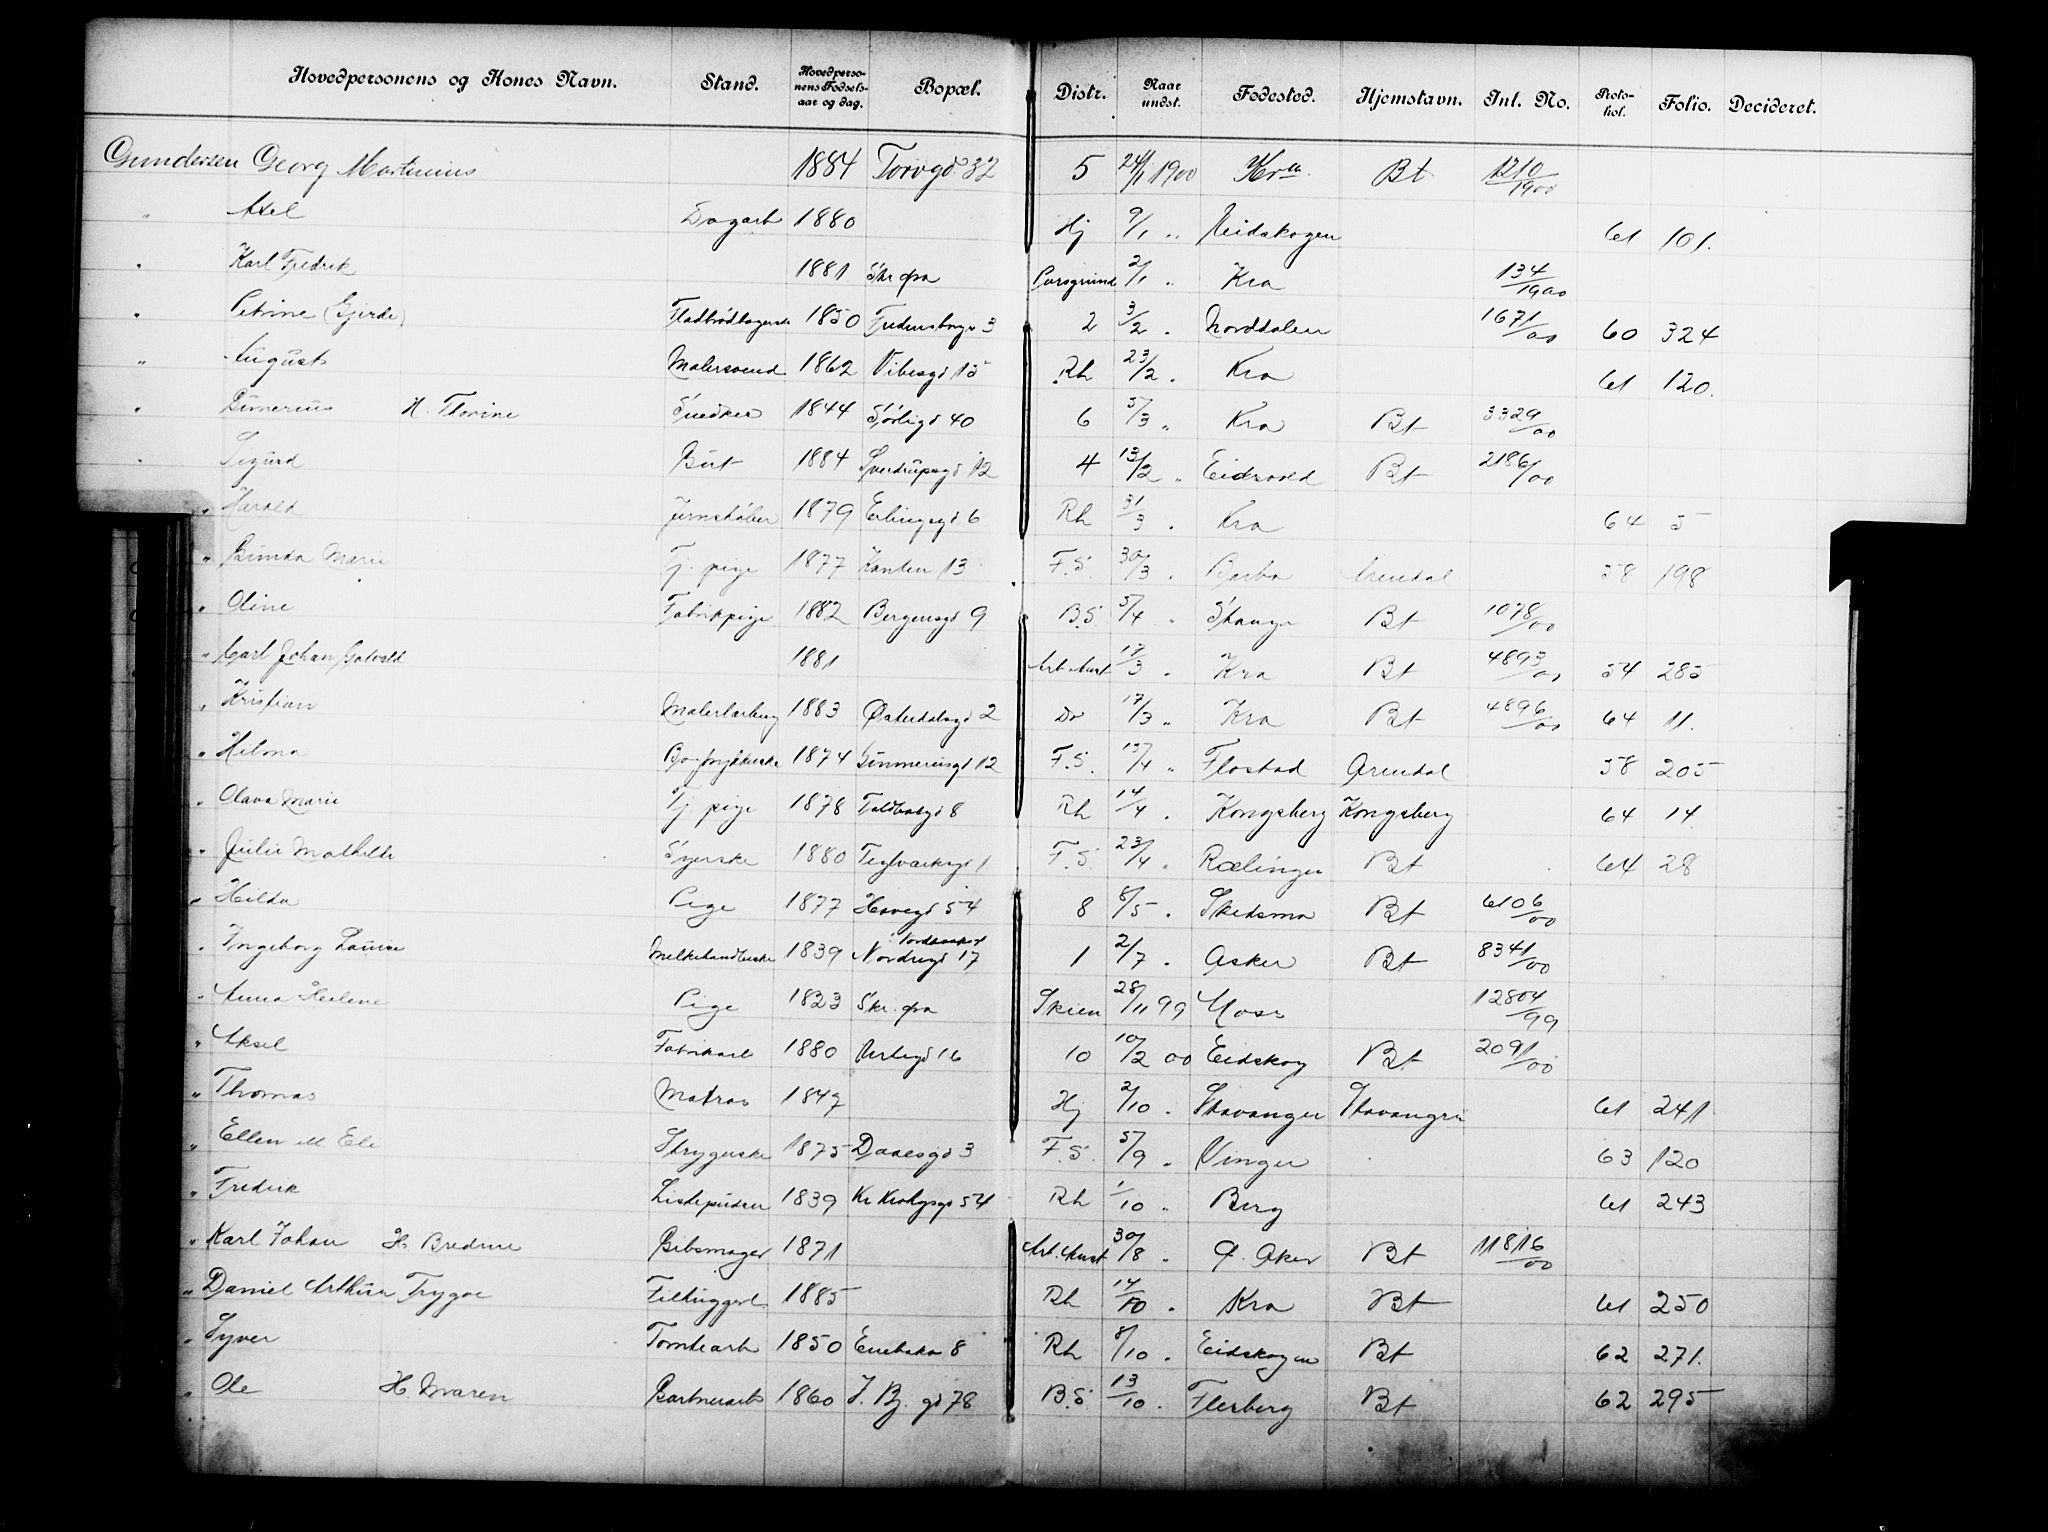 Hovedpersonens og Kones Navn. Stand. Hovedpersonens Fødselsaar og dag. Bopæl. Distr. Naar undst. Fødested. Hjemstavn. Inl. No. Protokol. Folio. Decideret.
Gundersen Georg Martinius 1884 Torvgd 32 5 24/1 1900 Kra. Bt 1210/1900
" Axel Dagarb 1880 Hj 9/1 " Eidskogen 61 101.
" Karl Fredrik 1881 Skr. fra Porsgrund 2/1 " Kra 134/1900
" Petrine (Gjerde) Fladbrødbagerske 1850 Fredensborgv 3 2 3/2 " Norddalen 1671/00 60 324
" August Malersvend 1862 Vibesgd 15 Rh 23/2 " Kra 61 120.
" Gunerius H. Thorine Snedker 1844 Sørligd 40 6 5/3 " Kra Bt 3329/00
" Sigurd Gut 1884 Sverdrupsgd 12 4 13/2 " Eidsvold Bt 2186/00
" Harald Jernstøber 1879 Erlingsgd 6 Rh 31/3 " Kra 64 5
" Gunda Marie Tj. pige 1877 Kanten 13 F.S. 30/3 " Barbo Arendal 58 198
" Oline Fabrikpige 1882 Bergensgd 9 B.S. 5/4 " Stange Bt 1078/00
" Carl Johan Gotvald 1881 Arb. Anst 17/3 " Kra Bt 4893/00 54 285
" Kristian Malerlærling 1883 Østerdalsgd 2 Do 17/3 " Kra Bt 4896/00 64 11.
" Helma 1874 Gunneriusgd 12 F.S. 13/4 " Flostad Arendal 58 205
" Olava Marie Tj. pige 1878 Toldbodgd 8 Rh 14/4 " Kongsberg Kongsberg 64 14
" Julie Mathilde Syerske 1880 Teglverksgd 1 F.S. 23/4 " Rælingen Bt 64 28
" Hilda Pige 1877 Havegd 54 8 8/5 " Skedsmo Bt 6106/00
" Ingeborg Laurine Melkehandlerske 1839 Nordregd 17 1 2/7 " Asker Bt 8341/00
" Anna Helene Pige 1823 Skr. fra Skien 28/11 99 Moss 12804/99
" Aksel Fabrikarb 1880 Urtegd 16 10 10/2 00 Eidskog Bt 2091/00
" Thomas Matros 1847 Hj 2/10 " Stavanger Stavanger 61 241.
" Ellen M Eli Strygerske 1875 Daaesgd 3 F.S. 5/9 " Vinger 63 120
" Fredrik Listepudser 1839 Kr Krohgsgd 54 Rh 1/10 " Berg 61 243
" Karl Johan H. Bredine Gibsmager 1871 Arb. Anst 30/8 " Ø. Aker Bt 11816/00
" Daniel Arthur Trygve Filhuggerl. 1885 Rh 14/10 " Kra Bt 61 250
" Syver Tomtearb 1850 Enebakv 8 Rh 8/10 " Eidskogen Bt 62 271.
" Ole H. Maren Gartnerarb 1860 J. Bj. gd 78 B.S 13/10 " Flesberg Bt 62 295